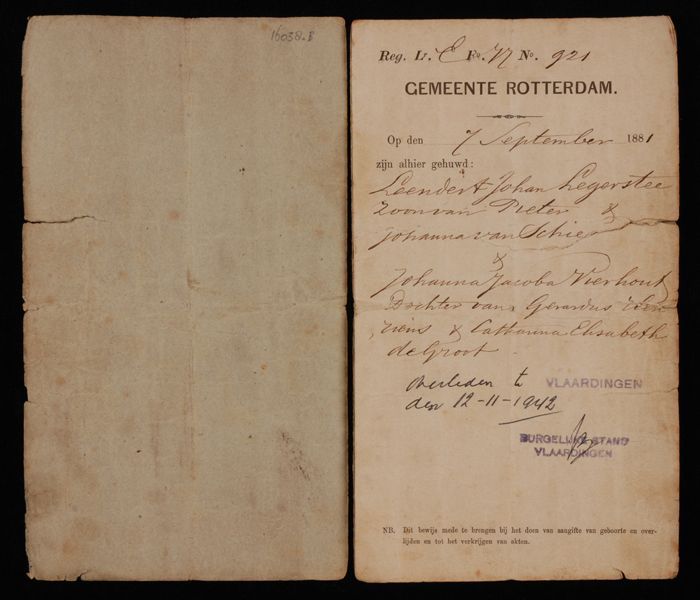 16038.B
Reg. Lr. C Fo. 77 No. 921
GEMEENTE ROTTERDAM.
Op den 7 September 1881
zijn alhier gehuwd:
Leendert Johan Legerstee
zoon van Pieter &
Johanna van Schie
&
Johanna Jacoba Vierhout
Dochter van Gerardus
& Catharina Elisabeth
de Groot
Overleden te VLAARDINGEN
den 12-11-1942
BURGELIJKE STAND
VLAARDINGEN
NB. Dit bewijs mede te brengen bij het doen van aangifte van geboorte en over-
lijden en tot het verkrijgen van akten.